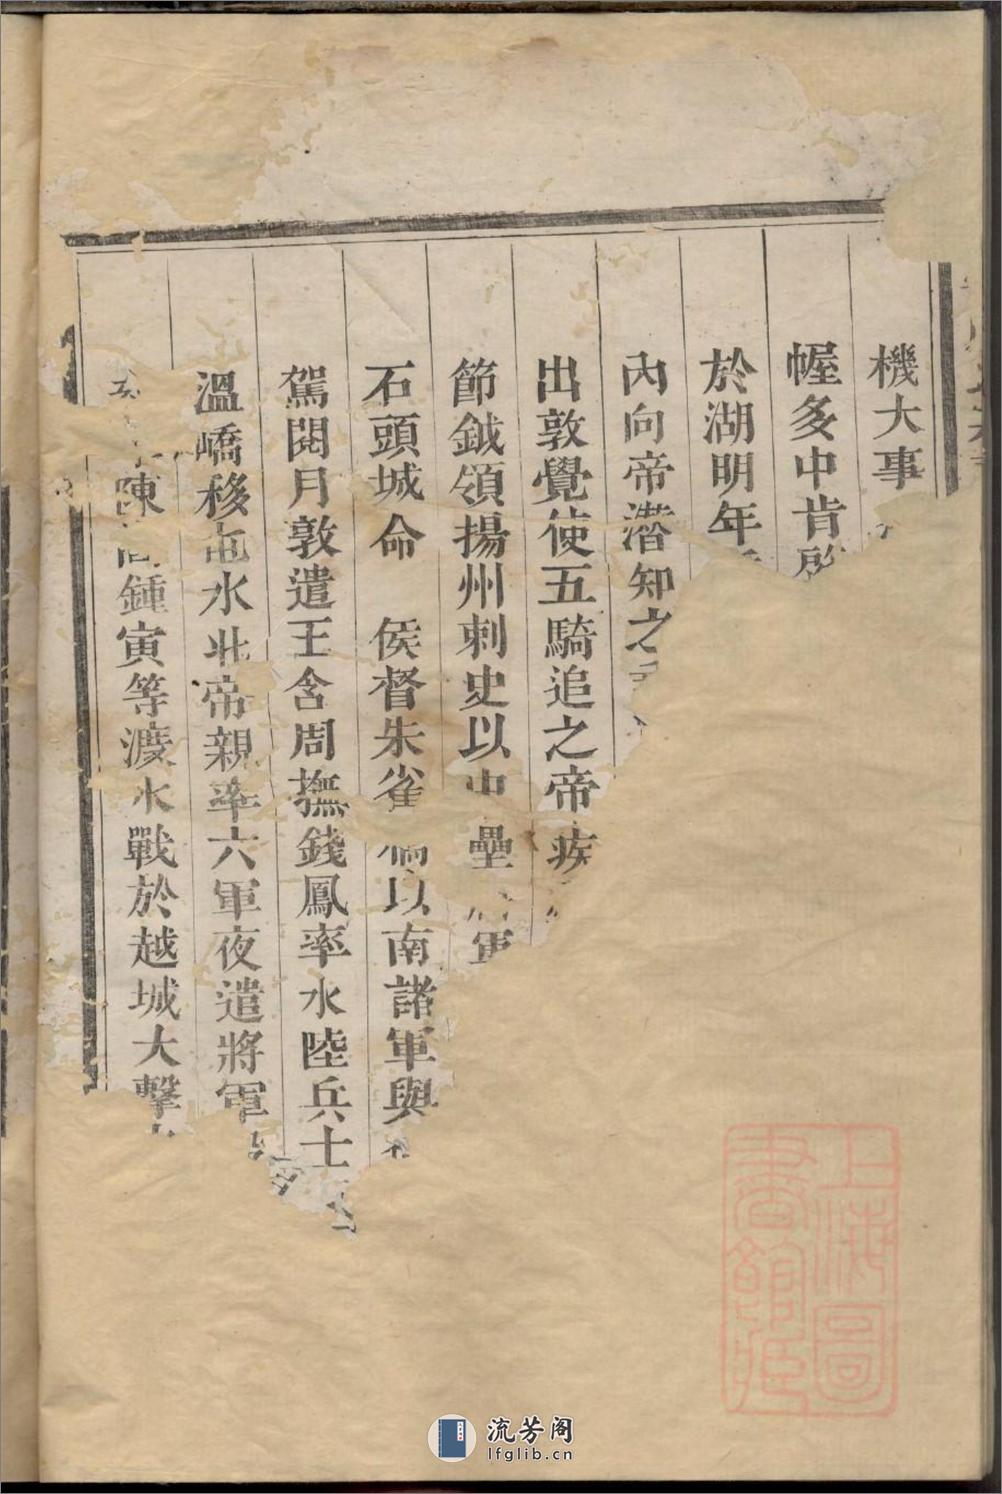 機大事
幄多中肯
於湖明年
內向帝潛知之
出敦覺使五騎追之帝疾
節鉞領揚州刺史以中壘軍
石頭城命 侯督朱雀以南諸軍與
駕閱月敦遣王含周撫錢鳳率水陸兵士
溫嶠移屯水北帝親率六軍夜遣將軍
陳鍾寅等渡水戰於越城大擊
上海圖
書館藏
流芳阁
lfglib.cn